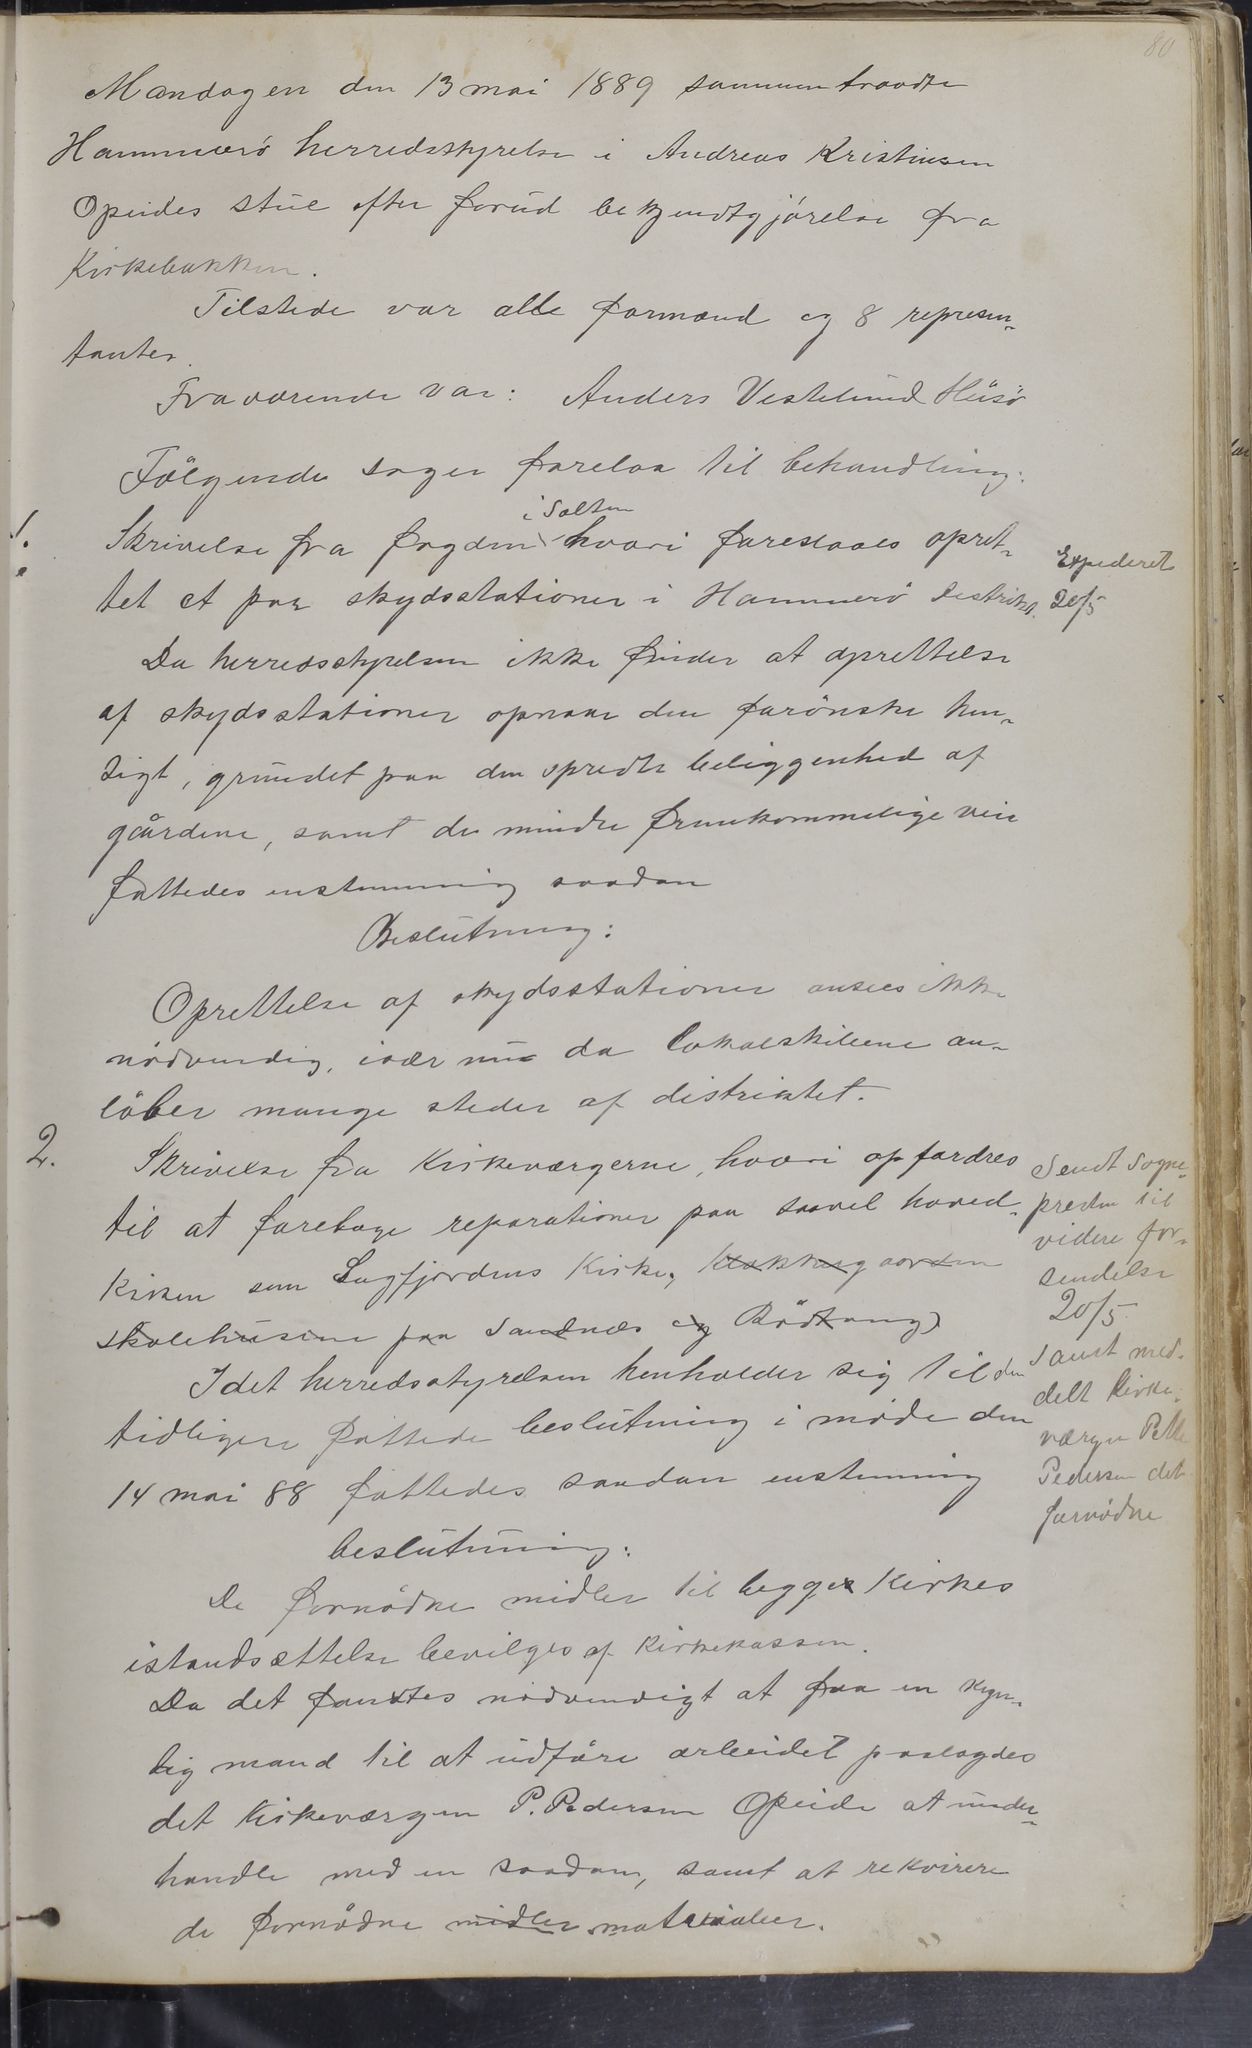 80
Mandagen den 13 mai 1889 sammentraadte
Hammerö herredsstyrelse i Andreas Kristiansen
Opeides stue efter forud bekjendtgjörelse fra
Kirkebakken.
Tilstede var alle formænd og 8 represen-
tanter.
Fraværende var: Anders Vestelund Husö
Fölgende sager forelaa til behandling:
1. Skrivelse fra fogden i Salten hvori foreslaaes opret-
tet et par skydsstationer i Hammerö Destrikt.
Expederet
20/5
Da herredsstyrelsen ikke finder at oprettelse
af skydsstationer opnaar den forönske hen-
sigt, grundet paa den spredte beliggenhed af
gårdene, samt de mindre fremkommelige veie
fattedes enstemmig saadan
Beslutning:
Oprettelse af skydsstationer ansees ikke
nödvendig, især nu da lokalskibene an-
löber mange steder af distriktet.
2. Skrivelse fra Kirkeværgerne, hvori opfordres
til at foretage reparationer paa saavel hoved-
kirken som Sagfjordens Kirke, Klokkergaarden
skolehusene paa Sandnæs og Bödtang)
Sendt Sogne-
presten til
videre for-
sendelse
20/5
samt med-
delt kirke-
værgen Petter
Pedersen det
fornödne
Idet herredsstyrelsen henholder sig til den
tidligere fattede beslutning i möde den
14 mai 88 fattedes saadan enstemmig
beslutning:
De fornödne midler til begge Kirkes
istandsættelse bevilges af Kirkekassen.
Da det fandtes nödvendigt at faa en kyn-
dig mand til at udföre arbeidet paalagdes
det Kirkeværgen P. Pedersen Opeide at under-
handle med en saadan, samt at rekvirere
de fornödne midler materialier.